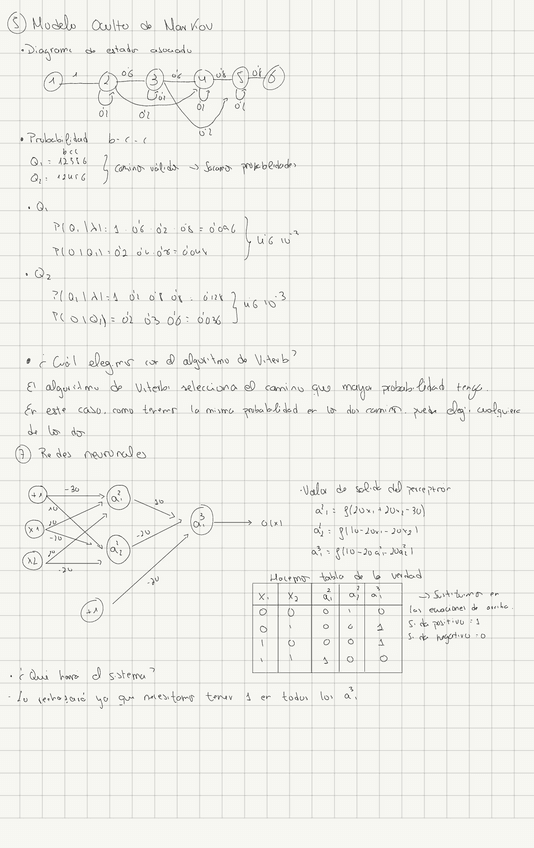 ⑤ Modelo Oculto de Markov
• Diagrama de estado asociado
1 2 3 4 5 6
1 0'6 0'6 0'8 0'8
0'2
0'2
• Probabilidad b-c-c
b c c
Q₁ = 12356
Q₂ = 12456
Camino válido → Sacamos probabilidades
• Q₁
P(Q₁|λ) = 1 · 0'6 · 0'2 · 0'8 = 0'096
P(O|Q₁) = 0'2
• Q₂
P(O|Q₂) = 0'2 0'3 0'6 = 0'036
4'6 10⁻³
• ¿Cuál elegimos con el algoritmo de Viterbi?
El algoritmo de Viterbi selecciona el camino que mayor probabilidad tenga.
En este caso, como tenemos la misma probabilidad en los dos caminos, puede elegir cualquiera
de los dos
⑦ Redes neuronales
+1 -30
x1
x2 -20
+1 -20
O(x)
- Valor de salida del perceptron
a₁² = f(20x₁ + 20x₂ - 30)
a₂² = f(10 - 20x₁ - 20x₂)
a₁³ = f(10 - 20a₁² - 20a₂²)
Hacemos tabla de la verdad
x₁ x₂ a₁² a₂² a₁³
0 0 0 1 0
0 1 0 0 1
1 0 0 0 1
1 1 1 0 0
→ Sustituimos en
las ecuaciones de arriba.
Si da positivo = 1
Si da negativo = 0
• ¿Qué hará el sistema?
- Lo rechazará ya que necesitamos tener 1 en todos los a₁³